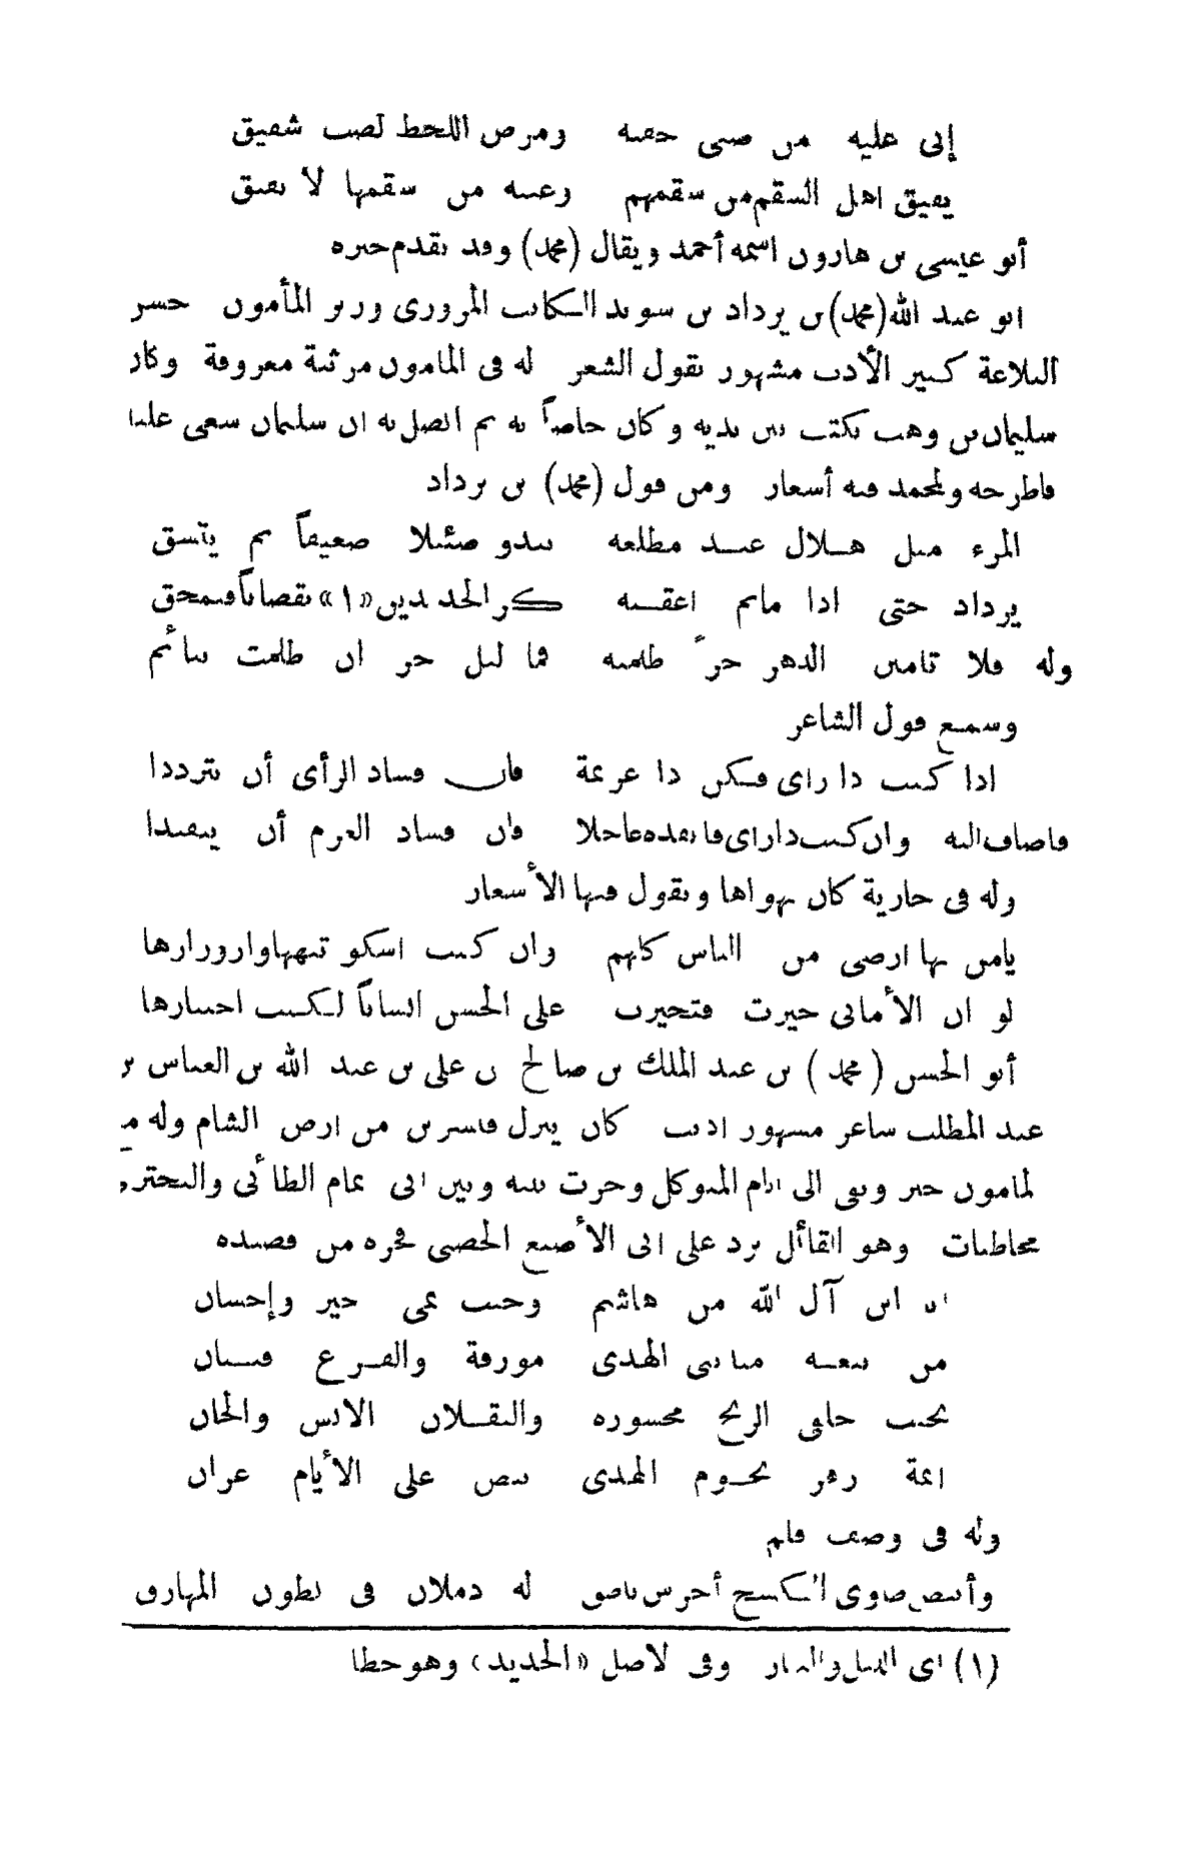 إنى عليه من صبى جفنه ومرض اللحظ لصب شفيق
يفيق اهل السقم من سقمهم وعينه من سقمها لا تفيق
أبو عيسى بن هارون اسمه أحمد ويقال (محمد) وقد تقدم خبره
ابو عبد الله (محمد) بن يزداد بن سويد الكاتب المروزى وزير المأمون حسن
البلاغة كثير الأدب مشهور يقول الشعر له فى المامون مرثية معروفة وكان
سليمان بن وهب يكتب بين يديه وكان خاصاً به ثم اتصل به ان سليمان سعى عليه
فاطرحه ولمحمد فيه أشعار ومن قول (محمد) بن يزداد
المرء مثل هلال عند مطلعه يبدو ضئيلا ضعيفاً ثم يتسق
يزداد حتى اذا ماتم اعقبه كر الجديدين «١» نقصاناً فيمحق
وله فلا تامنن الدهر حراً ظلمته فما ليل حر ان ظلمت بنائم
وسمع قول الشاعر
اذا كنت ذا راى فكن ذا عزيمة فان فساد الرأى أن تترددا
فاضاف اليه وان كنت ذاراى فانفذه عاجلا فان فساد العزم أن يتفندا
وله فى جارية كان يهواها ويقول فيها الأشعار
يامن بها ارضى من الناس كلهم وان كنت اشكو تيهها وازورارها
لو ان الأمانى خيرت فتخيرت على الحسن انساناً لكنت اختيارها
أبو الحسن (محمد) بن عبد الملك بن صالح بن على بن عبد الله بن العباس بن
عبد المطلب شاعر مشهور اديب كان ينزل قنسرين من ارض الشام وله مع
لمامون خبر وبقى الى ايام المتوكل وجرت بينه وبين ابى تمام الطائى والبحترى
مخاطبات وهو القائل يرد على ابى الأصبع الحصى فخره من قصيده
ان ابن آل الله من هاشم وحيث نمى خير وإحسان
من نبعه منابتى الهدى مورقة والفرع فينان
تحت جلى الريح محسوره والثقلان الانس والجان
ائمة زهر نجوم الهدى بيض على الأيام غران
وله فى وصف قلم
وأبيض طاوى الكشح أخرس ناطق له ذملان فى بطون المهارق
(١) اى الليل والنهار وفى لاصل «الحديد» وهو خطا